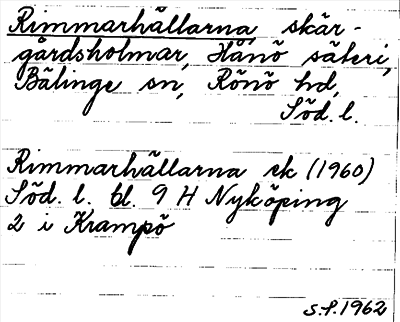 Rimmarhällarna, skär-
gårdsholmar, Hånö säteri,
Bälinge sn, Rönö hd,
Söd. l.
Rimmarhällarna ek (1960)
Söd. l. bl. 9 H Nyköping
2 i Krampö
S.S. 1962